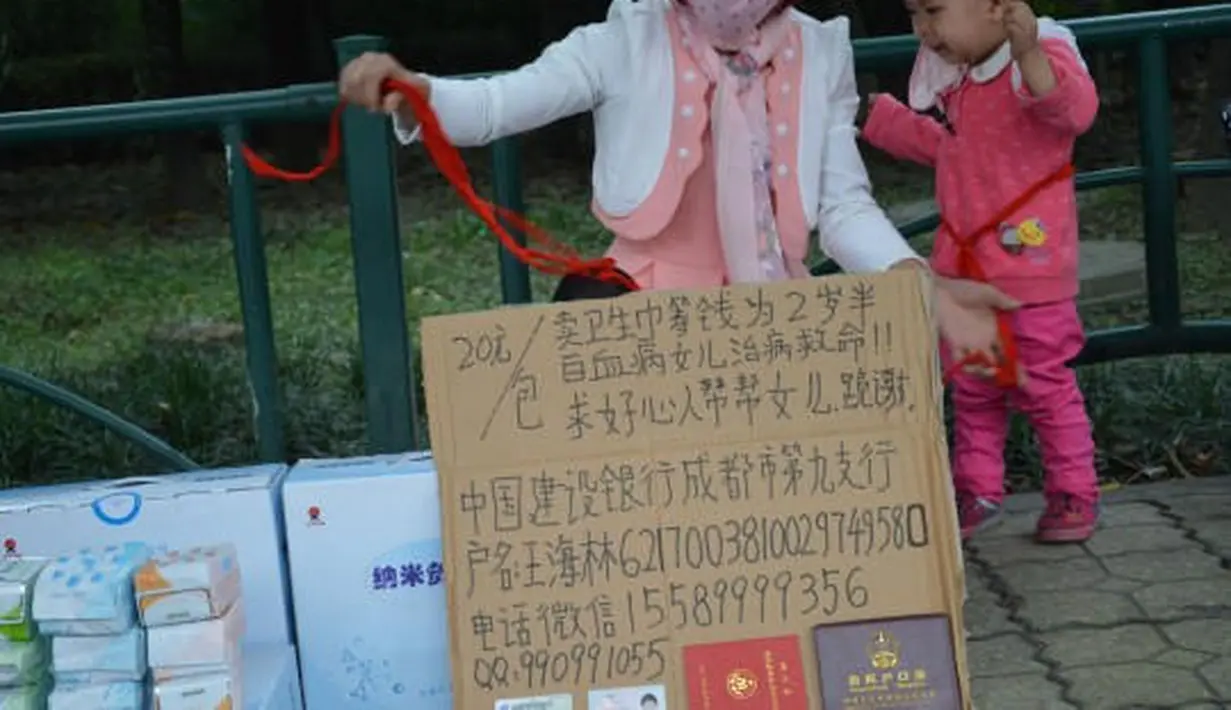 20元/包
卖卫生巾筹钱为2岁半
白血病女儿治病救命!!
求好心人帮帮女儿.跪谢.
中国建设银行成都市第九支行
户名:王海林6217003810029749580
电话微信15589999356
QQ:990991055
纳米
居民户口簿